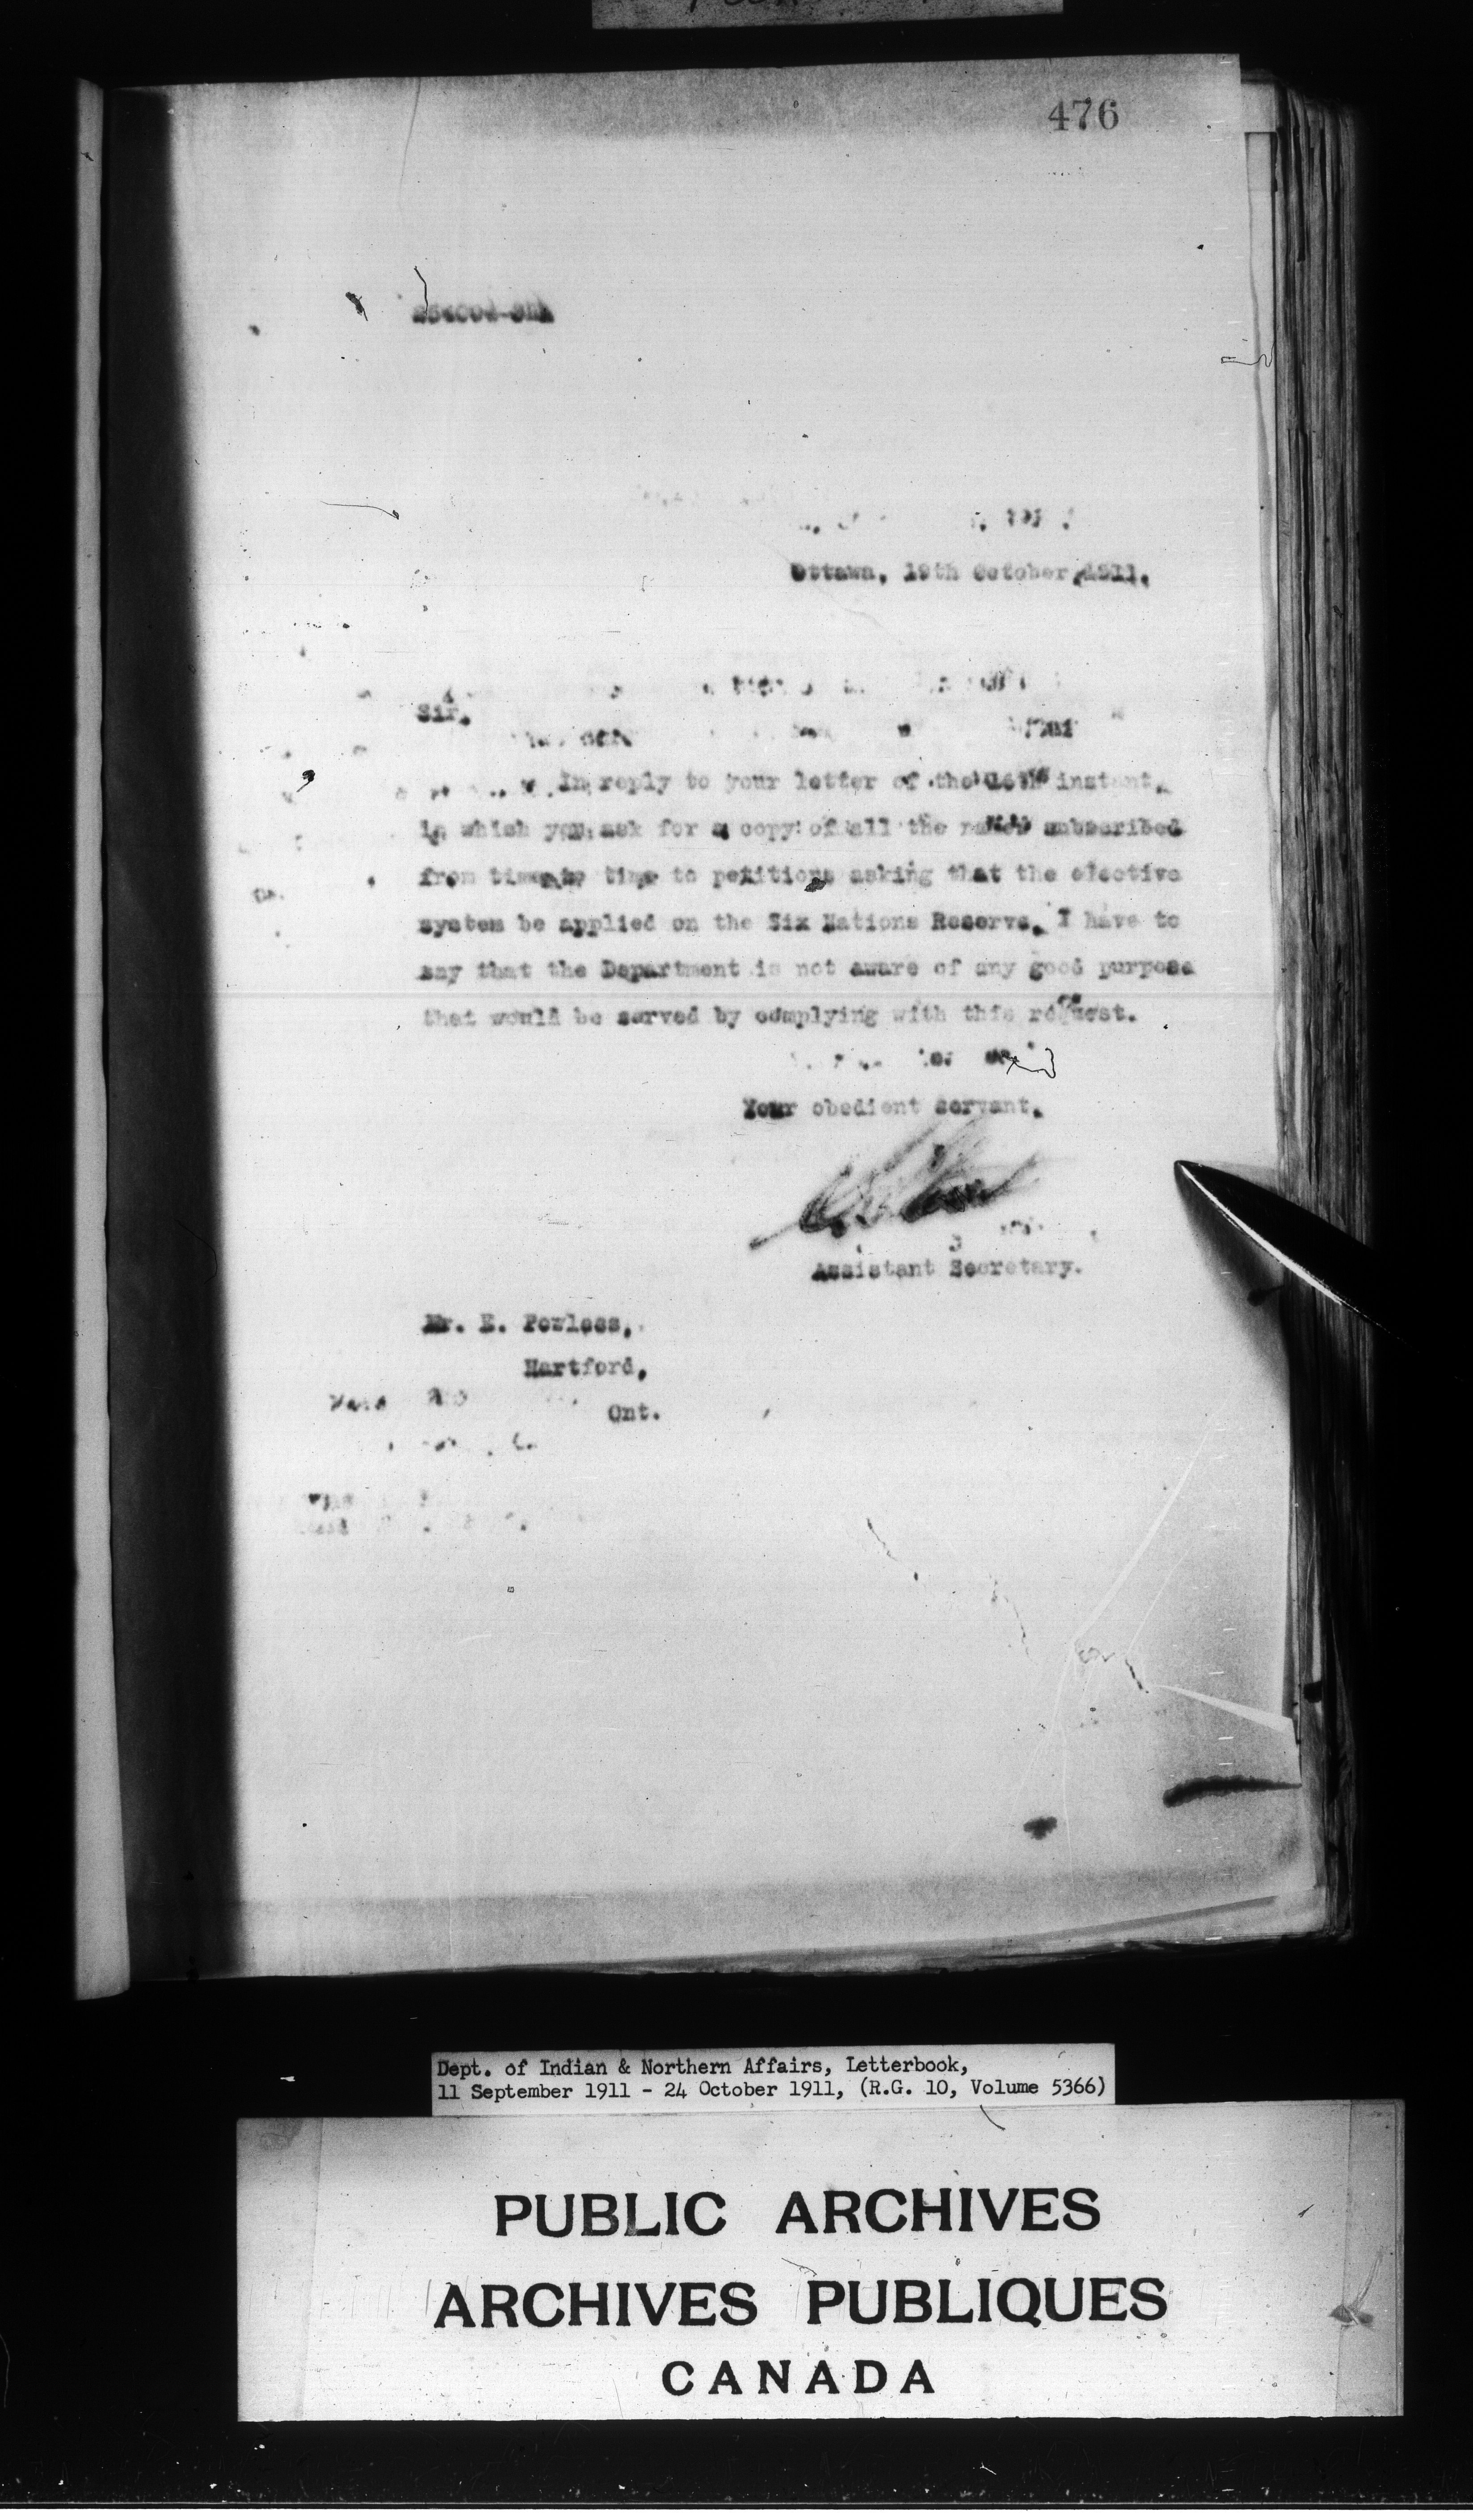 476
Ottawa, 19th October, 1911.
Sir,
In reply to your letter of the 14th instant,
in which you ask for a copy of all the names subscribed
from time to time to petitions asking that the elective
system be applied on the Six Nations Reserve, I have to
say that the Department is not aware of any good purpose
that would be served by complying with this request.
Your obedient servant,
Assistant Secretary.
Mr. E. Powless,
Hartford,
Ont.
Dept. of Indian & Northern Affairs, Letterbook,
11 September 1911 - 24 October 1911, (R.G. 10, Volume 5366)
PUBLIC ARCHIVES
ARCHIVES PUBLIQUES
CANADA